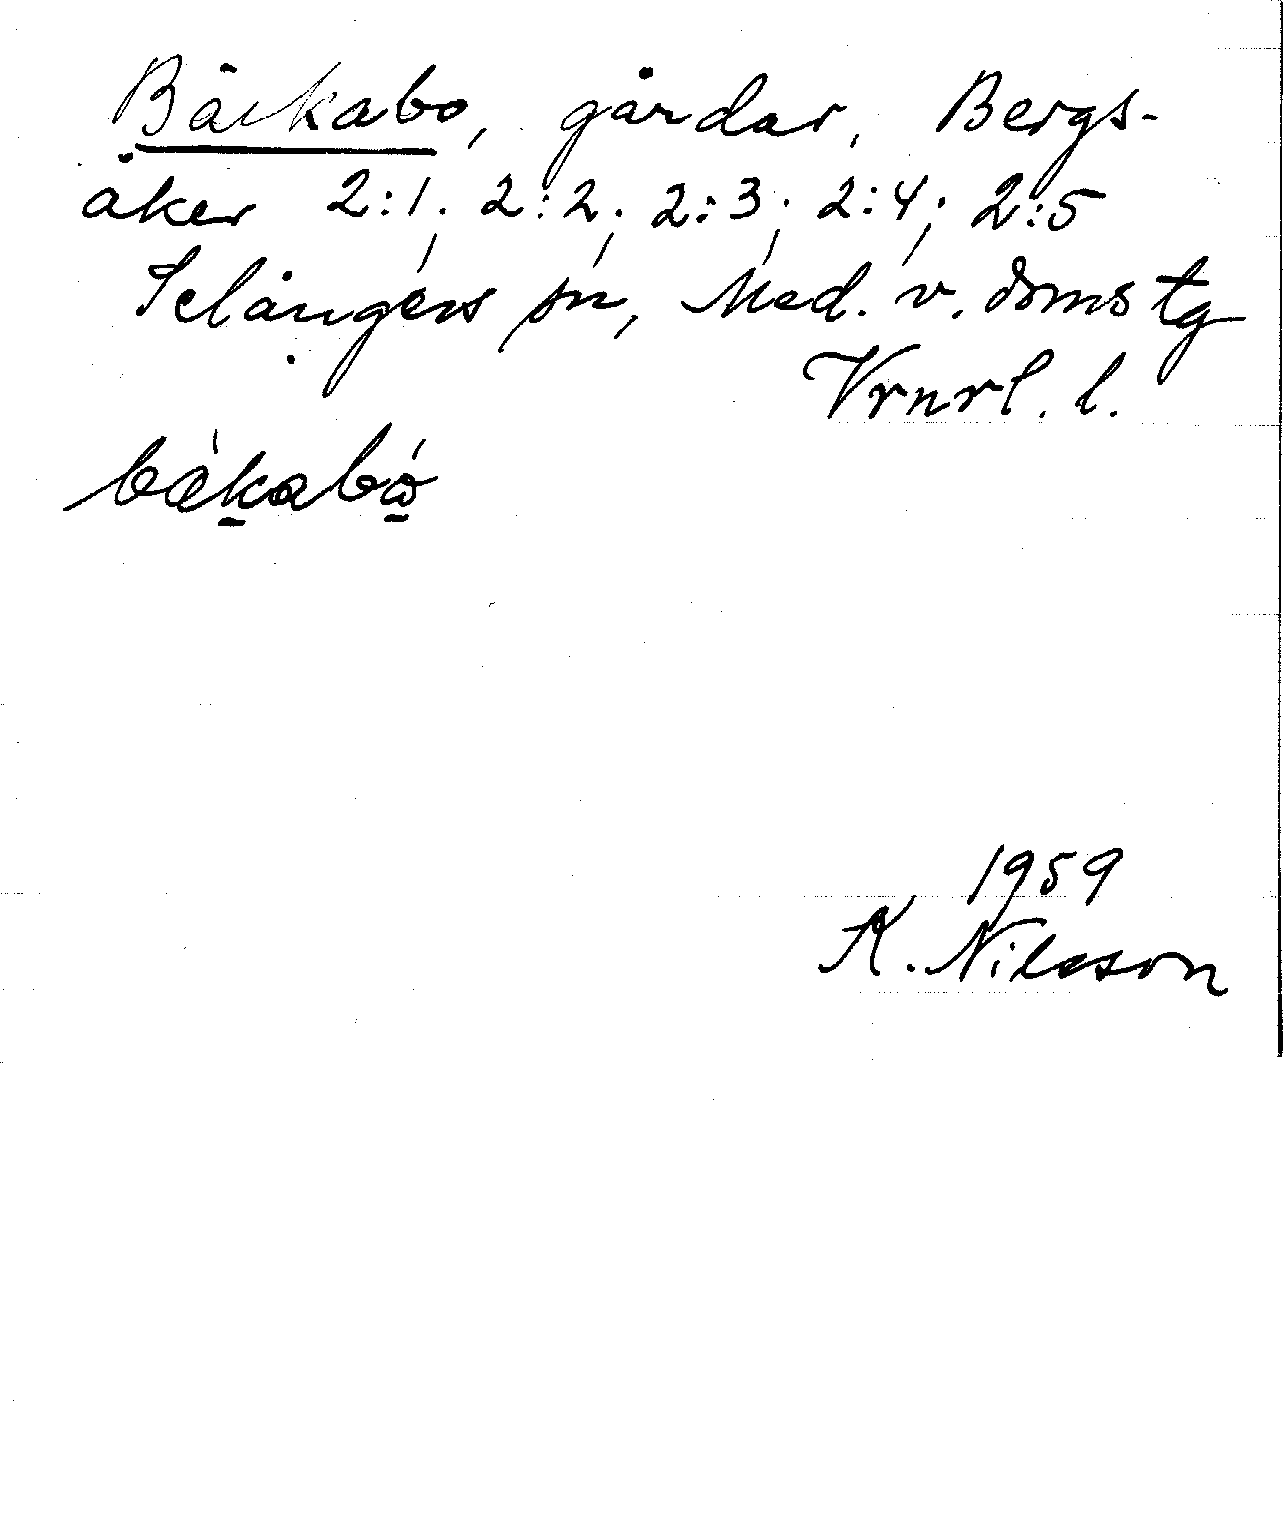 Bäckabo, gårdar, Bergs-
åker 2:1; 2:2; 2:3; 2:4; 2:5
Selångers sn, Med. v. domstg
Vrnrl. l.
bäkabó
1959
K. Nilsson